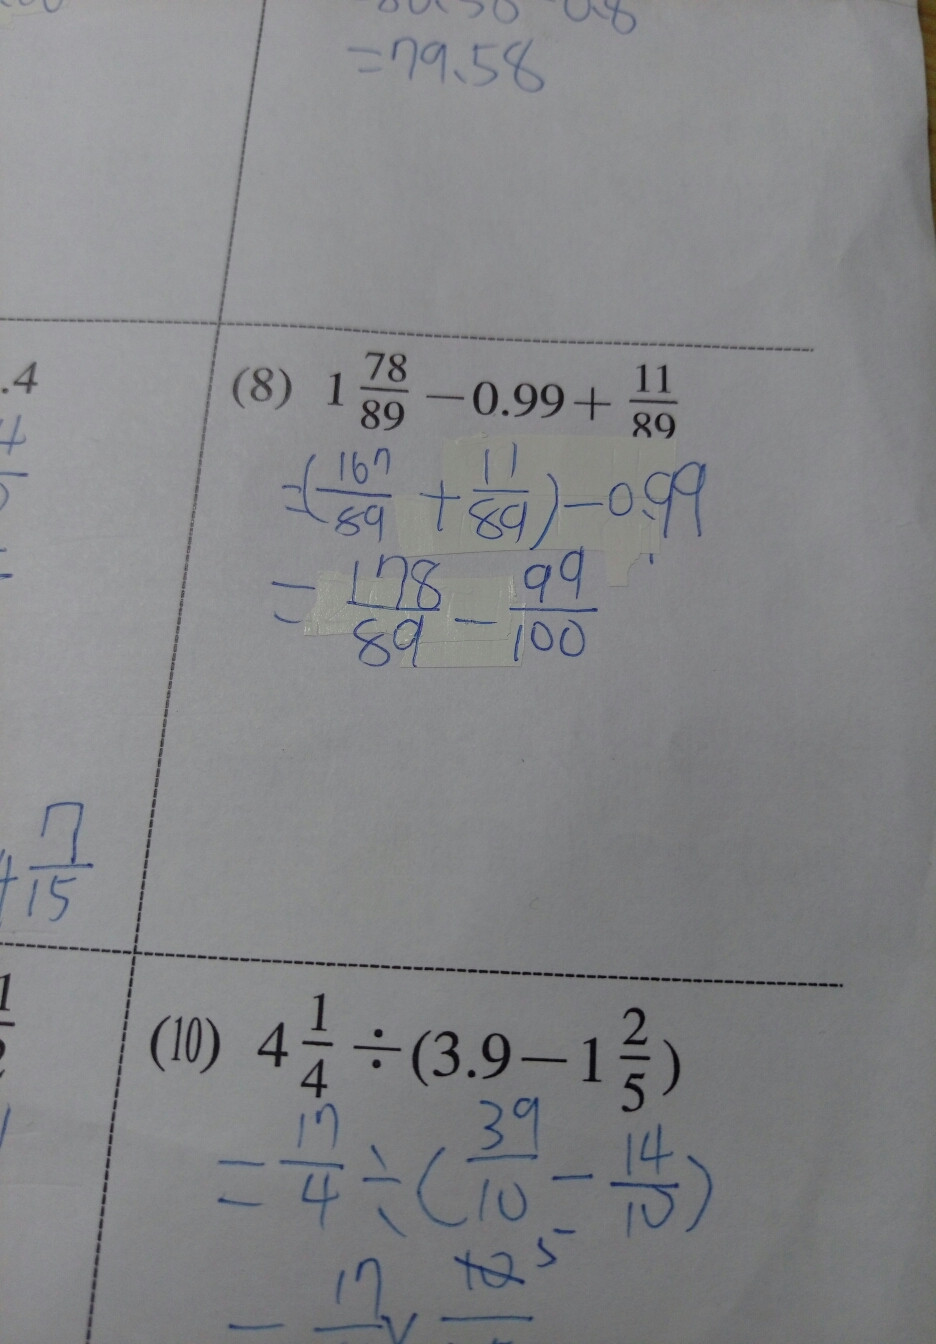 =79.58
.4
(8) 1 78/89 − 0.99 + 11/89
=(167/89 + 11/89) − 0.99
= 178/89 − 99/100
+ 7/15
(10) 4 1/4 ÷ (3.9 − 1 2/5)
= 17/4 ÷ (39/10 − 14/10)